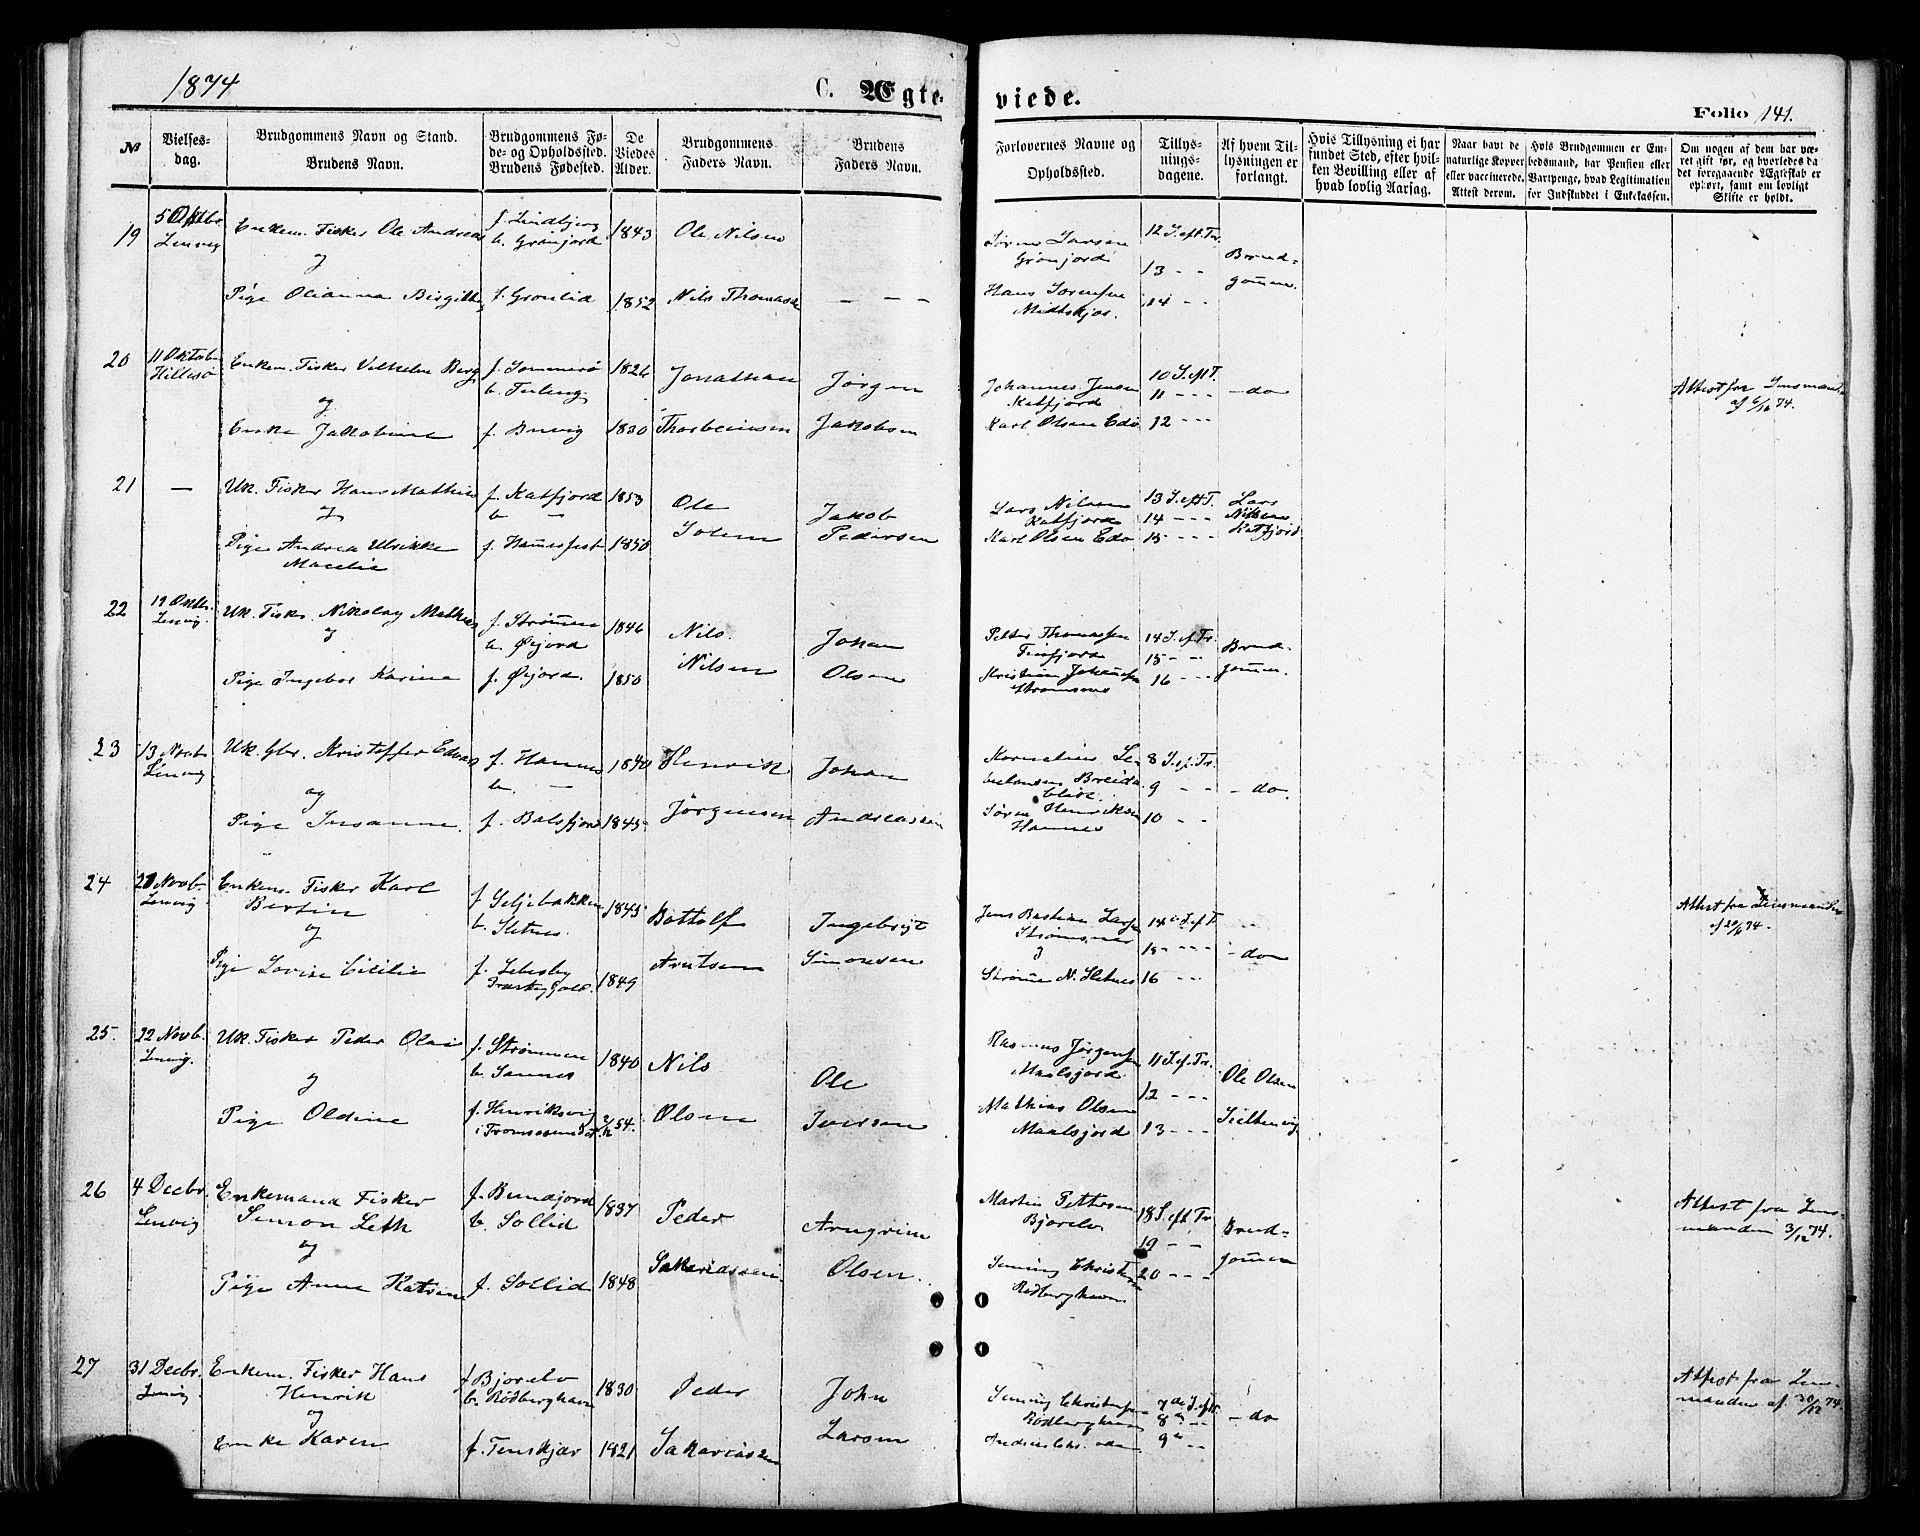 1874
C. Ægte
viede.
Folio 141.
№
Vielses-
dag.
Brudgommens Navn og Stand.
Brudens Navn.
Brudgommens Fø-
de- og Opholdssted.
Brudens Fødested.
De
Viedes
Alder.
Brudgommens
Faders Navn.
Brudens
Faders Navn.
Forlovernes Navne og
Opholdssted.
Tillys-
nings-
dagene.
Af hvem Til-
lysningen er
forlangt.
Hvis Tillysning ei har
fundet Sted, efter hvil-
ken Bevilling eller af
hvad lovlig Aarsag.
Naar havt de
naturlige Kopper
eller vaccinerede.
Attest derom.
Hvis Brudgommen er Em-
bedsmand, har Pension eller
Vartpenge, hvad Legitimation
for Indskuddet i Enkekassen.
Om nogen af dem har væ-
ret gift før, og hvorledes da
det foregaaende Ægteskab er
ophørt, samt om lovligt
Skifte er holdt.
19
5 Oktbr
Lenvig
Enkem. Fisker Ole Andreas
og
Pige Olianna Birgitte
f. Lindbjerg
b. Grønjord
f. Grønlid
1843
1852
Ole Nilsen
Nils Thomasen
— — —
Søren Larsen
Grønjord
Hans Sørensen
12 S. eft. Tr.
13 - -
14 - -
Brud-
gomen.
20
11 Oktob
Hillesø
Enkem. Fisker Vilhelm Berg
og
Enke Jakobine
f. Sommerø
f. Buvig
1826
1830
Jonathan
Thorbeinsen
Jørgen
Jakobsen
Johannes Jensen
Katfjord
Karl Olsen Edø
10 S. eft T.
11 - - -
12 - - -
- do
Attest fra Lensmanden
af 6/10 74.
21
—
Uk. Fisker Hans Mathias
og
Pige Andrea Ulrikke
f. Katfjord
b —
f. Hamerfest
1853
1850
Ole
Jakob
Pedersen
Lars Nilsen
Katfjord
Karl Olsen Edø
13 S. eft T.
14 - - -
15 - - -
Lars
Nilsen
Katfjord
22
Lenvig.
Uk. Fisker Nikolay Mathias
og
Pige Ingebor Karina
f. Strømen
b. Øijord
f. Øijord
1846
1850
Nils
Nilsen
Johan
Olsen
Petter Thomassen
Kristian Johansen
Strømsnes
14 S. ef. Tr.
15 - -
16 - - -
Brud-
gomen.
23
13 Novb
Lenvig
Uk. Gbr. Kristoffer Edvard
og
Pige Susanne.
f. Hannes
b. —
f. Balsfjord
1840
1845
Henrik
Jørgensen
Johan
Andreassen
Kornelius
Breida-
blik.
Søren Henriksen
Hannes
8 S. ef. Tr.
9 - -
10 - -
- do.
24
Lenvig
Enkem. Fisker Karl
Bertin
og
Pige Lovise Cicilie
f Seljebakken
b. Sletnes
f. Lebesby
Præstegjæld.
1845
1849
Bottolf
Arntsen
Ingebrigt
Simonsen
Jens Bastian Larsen
Strømsnes
og
Strøme N. Sletnes
14 S. eft T.
15 - - -
16 - -
- do
Attest fra Lensmanden
25.
22 Novb.
Lenvig.
Uk. Fisker Peder Olai
og
Pige Oldine
f. Strømmen
b. Sannes
f. Henriksvig
i Tromsøsundet
1840
54.
Nils
Olsen
Ole
Iversen
Rasmus Jørgensen
Maalsjord
Mathias Olsen
Maalsjord
11 S. ef. Tr.
12 - -
13 - - -
Ole Olsen
26
4 Decbr.
Lenvig
Enkemand Fisker
Simon Leth
og
Pige Anne Katrine
b. Sollid
f. Sollid
1837
1848
Peder
Sakariassen
Arngrim
Olsen
Martin Pettersen
Bjorelv
Christensen
Rødberghavn
18 S. eft Tr.
19 - -
20 - - -
Brud-
gomen
Attest fra Lens-
manden 3/12 74.
27
31 Decbr.
Lenvig
Enkem. Fisker Hans
Henrik
og
Enke Karen
f Bjorelv
b. Rødberghavn
f. Tenskjær
1830
1821
Peder
Sakariassen
John
Larsen
Rødberghavn
7de S. eft
8de - -
9de - -
- do
Attest fra Lens-
manden af 30/12 74.